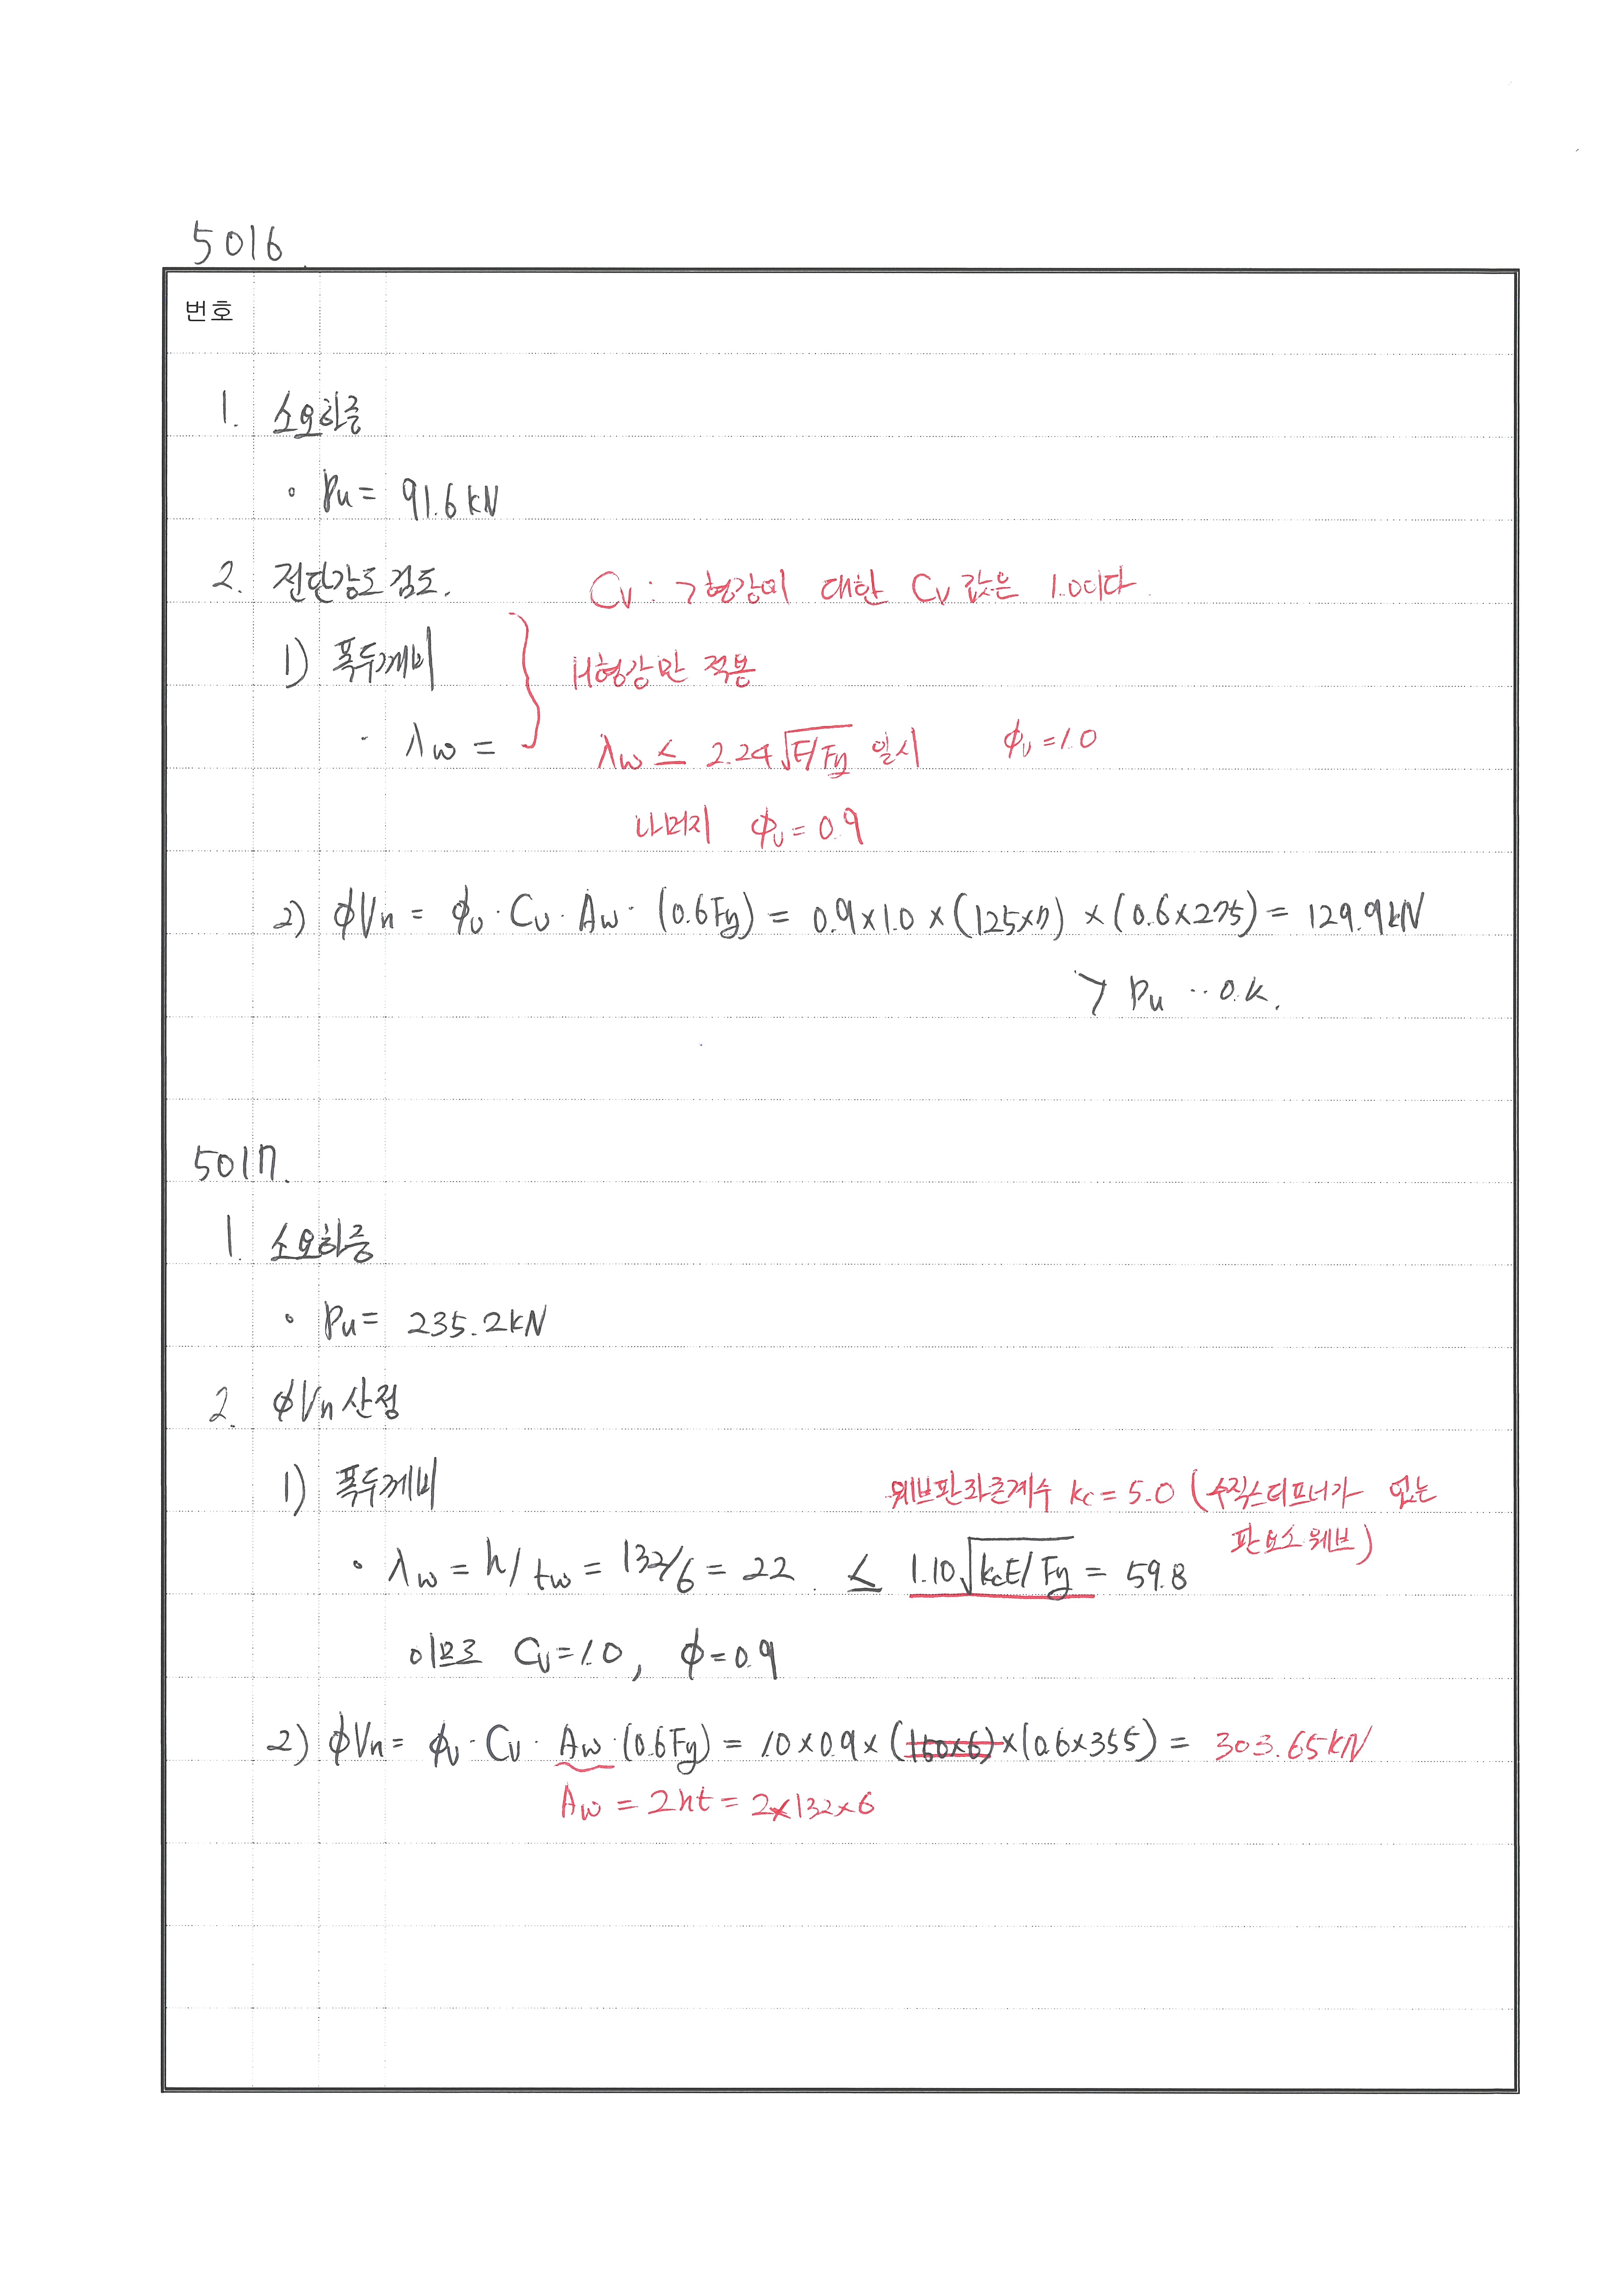 5016.
번호
1. 소요하중
• Pu = 91.6kN
2. 전단강도 검토. Cv : ㄱ형강에 대한 Cv 값은 1.0이다.
1) 폭두께비
H형강만 적용
· λw = λw ≤ 2.24√E/Fy 일시 ϕv = 1.0
나머지 ϕv = 0.9
2) ϕVn = ϕv · Cv · Aw · (0.6Fy) = 0.9×1.0×(125×7)×(0.6×275) = 129.9kN
> Pu ·· O.K.
5017.
1. 소요하중
• Pu = 235.2kN
2. ϕVn 산정
1) 폭두께비 웨브판좌굴계수 kc = 5.0 (수직스티프너가 없는
판요소 웨브)
• λw = h/tw = 132/6 = 22. ≤ 1.10√kcE/Fy = 59.8
이므로 Cv = 1.0, ϕ = 0.9
2) ϕVn = ϕv · Cv · Aw · (0.6Fy) = 1.0×0.9×(160×6)×(0.6×355) = 303.65kN
Aw = 2ht = 2×132×6